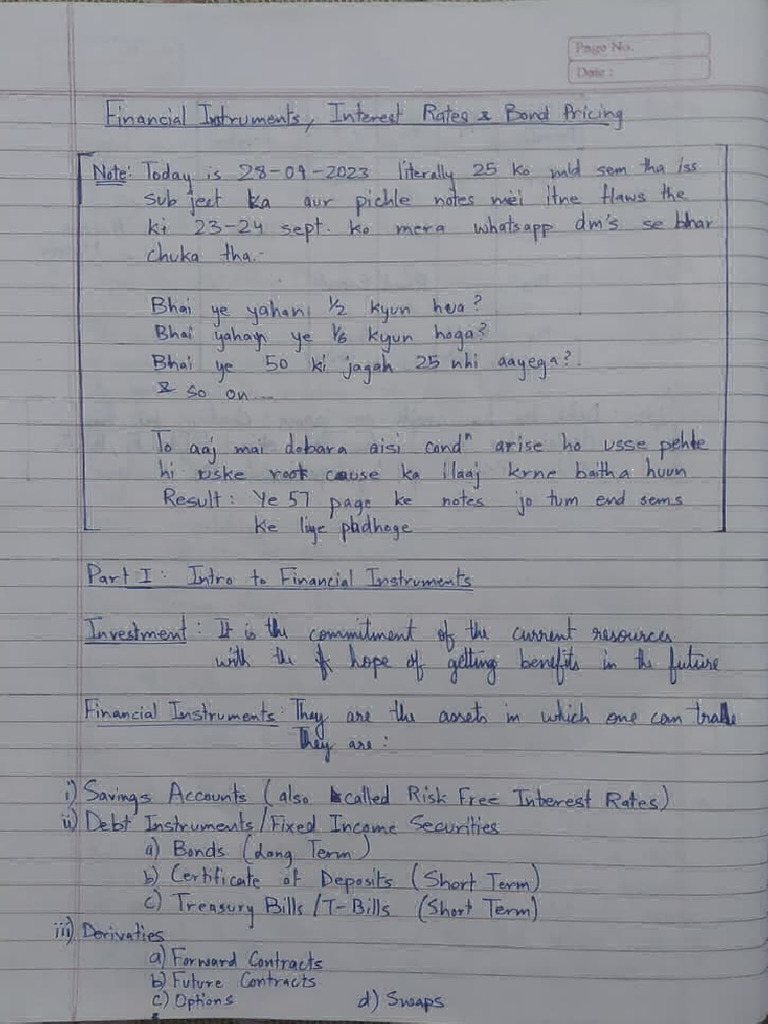 Page No.
Date :
Financial Intruments, Interest Rates & Bond Pricing
Note: Today is 28-09-2023 literally 25 ko mid sem tha iss
subject ka aur pichle notes mei itne flaws the
ki 23-24 sept. ko mera whatsapp dm's se bhar
chuka tha.-
Bhai ye yahan 1/2 kyun hua?
Bhai yahan ye 1/6 kyun hoga?
Bhai ye 50 ki jagah 25 nhi aayega?
& so on...
To aaj mai dobara aisi condⁿ arise ho usse pehle
hi uske root cause ka ilaaj krne baitha huun
Result: Ye 57 page ke notes jo tum end sems
ke liye padhoge
Part I: Intro to Financial Instruments
Investment: It is the commitment of the current resources
with the hope of getting benefits in the future
Financial Instruments: They are the assets in which one can trade
They are:
i) Savings Accounts (also called Risk Free Interest Rates)
ii) Debt Instruments/Fixed Income Securities
a) Bonds (Long Term)
b) Certificate of Deposits (Short Term)
c) Treasury Bills/T-Bills (Short Term)
iii) Derivaties
a) Forward Contracts
b) Future Contracts
c) Options d) Swaps